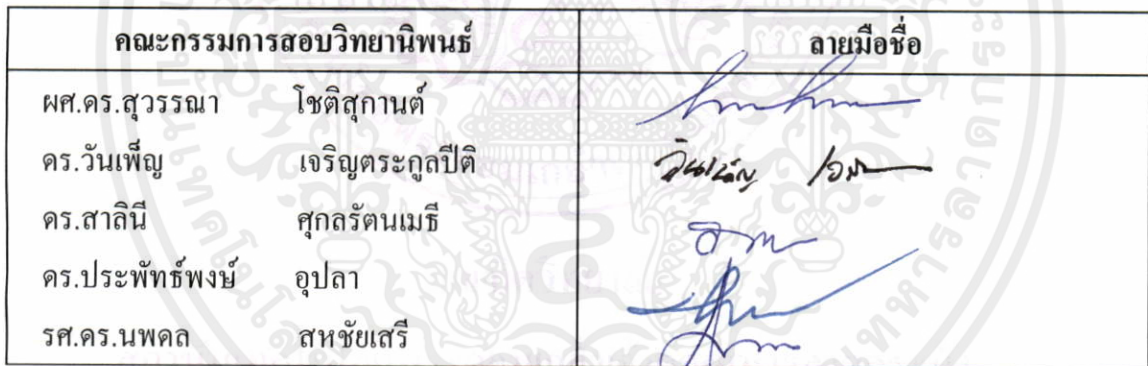 คณะกรรมการสอบวิทยานิพนธ์ ลายมือชื่อ
ผศ.ดร.สุวรรณา โชติสุกานต์
ดร.วันเพ็ญ เจริญตระกูลปีติ
ดร.สาลินี ศุกลรัตนเมธี
ดร.ประพัทธ์พงษ์ อุปลา
รศ.ดร.นพดล สหชัยเสรี